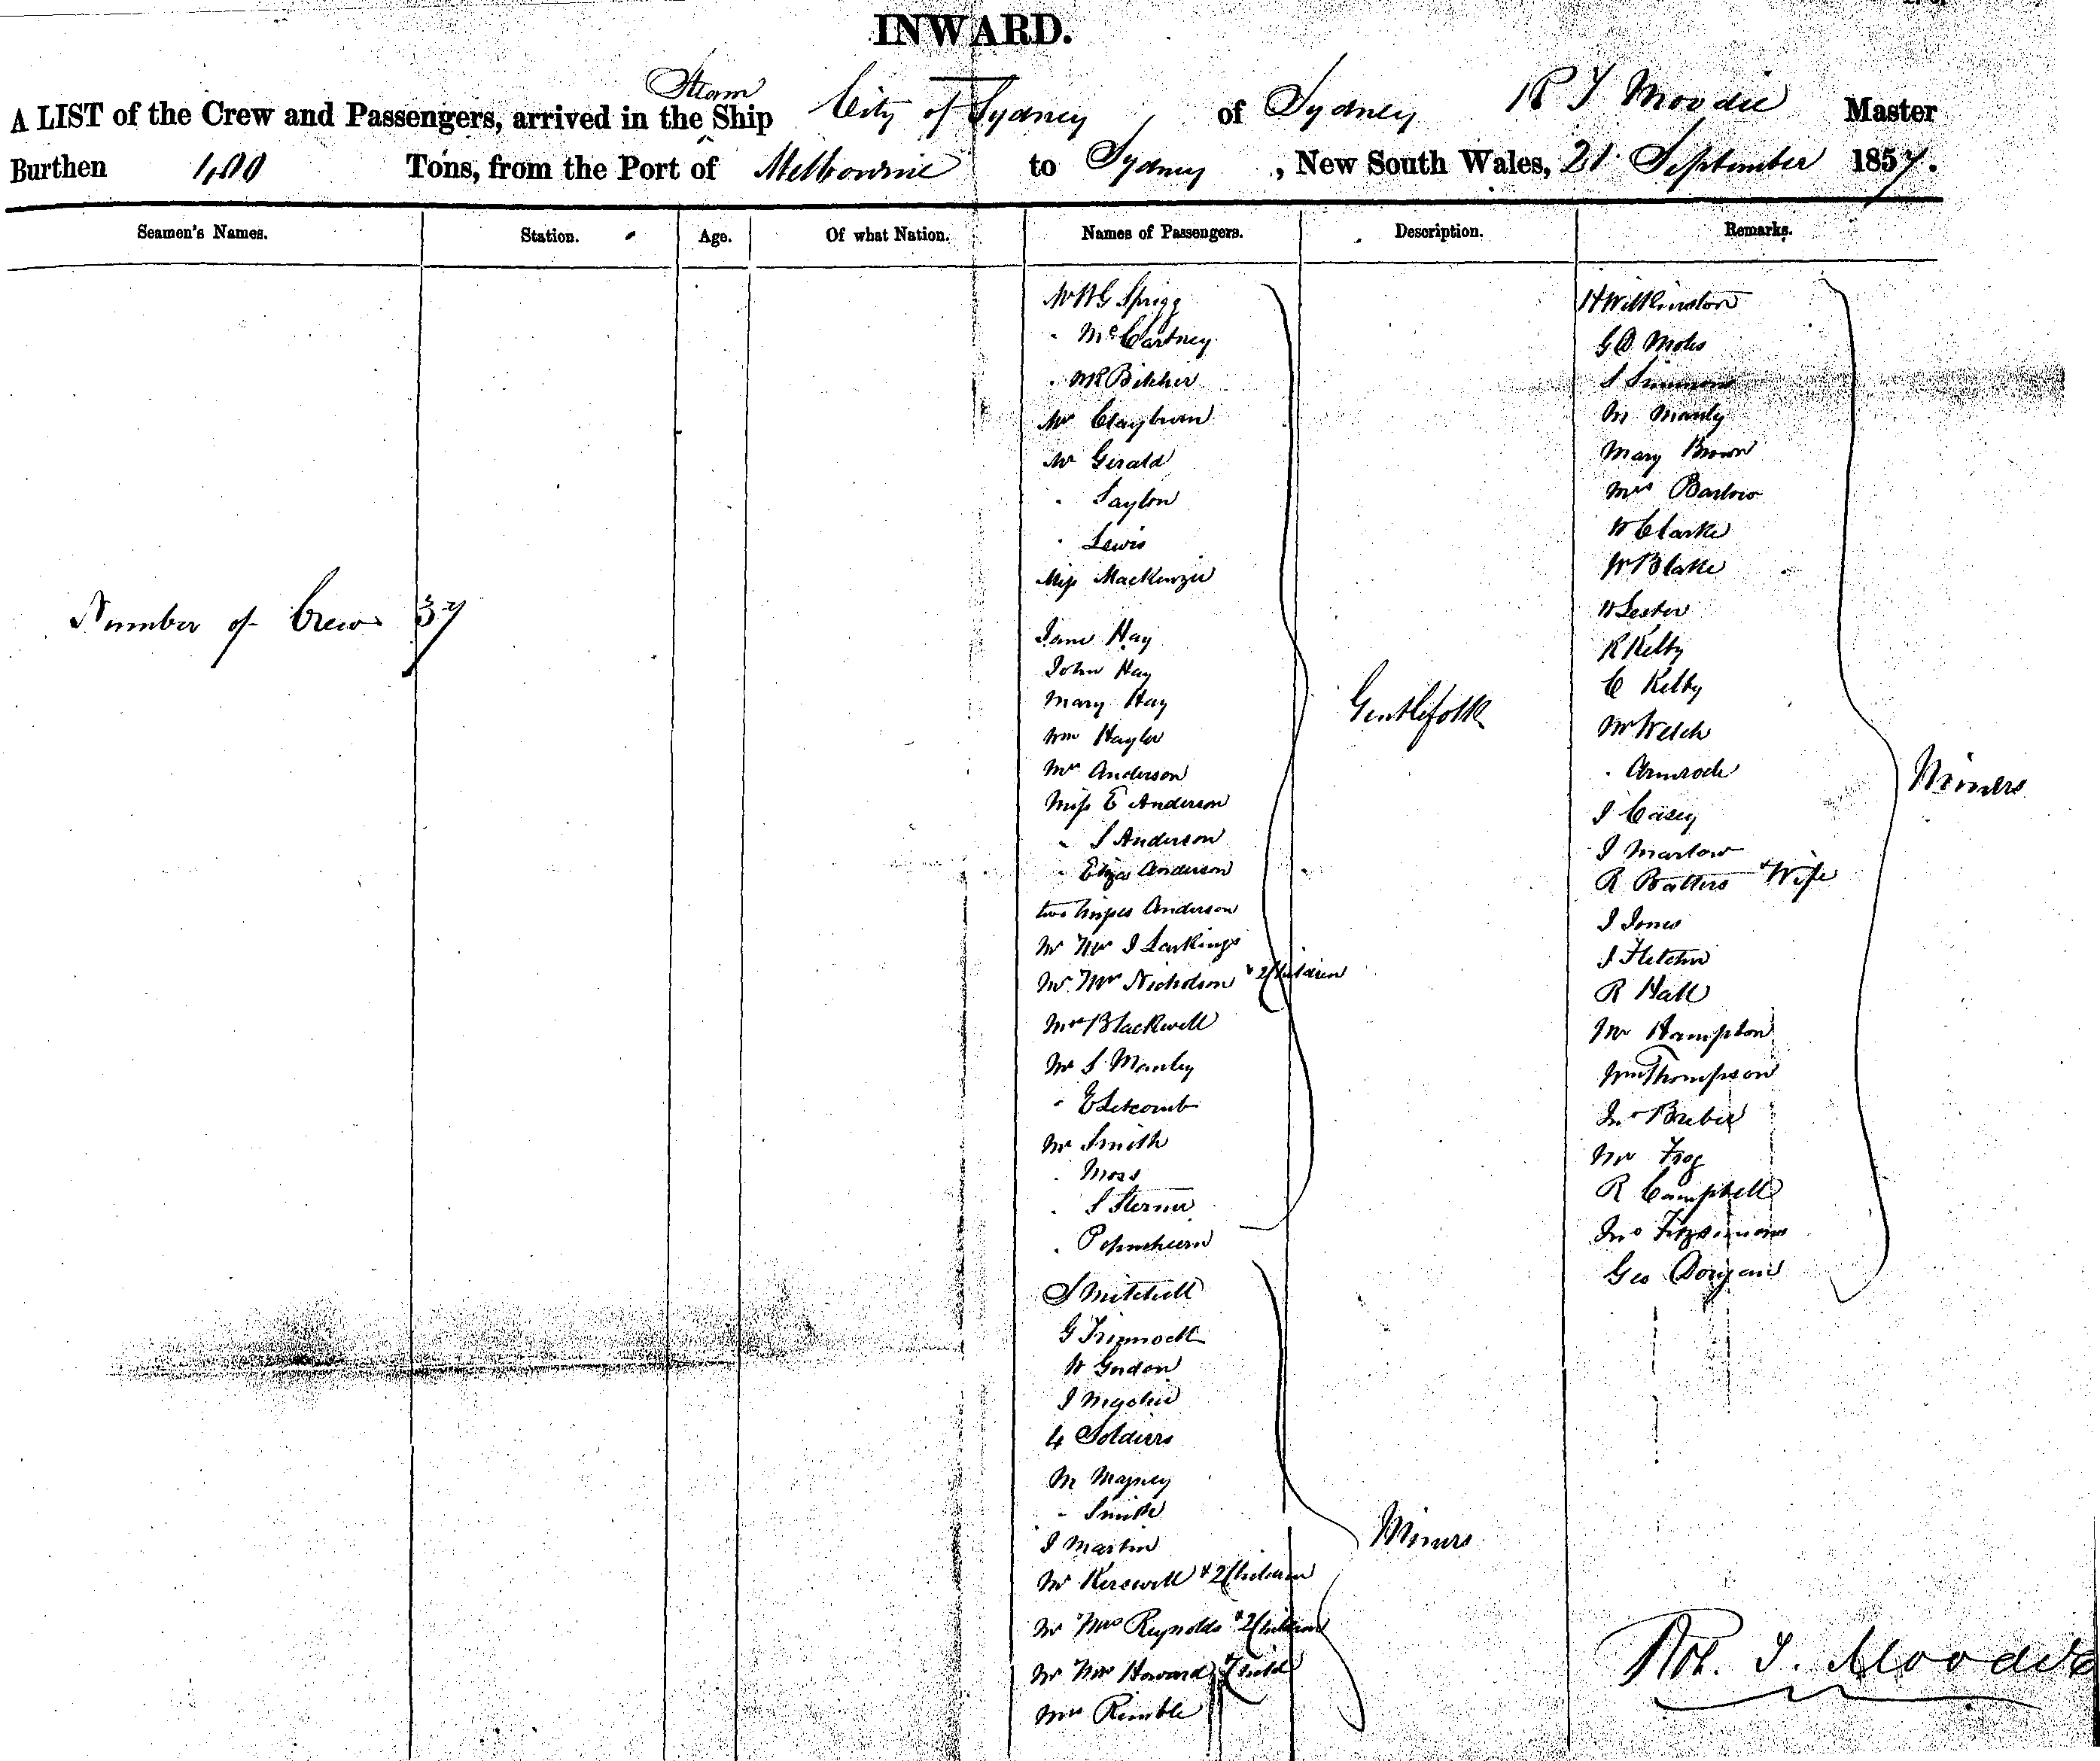 INWARD.
A LIST of the Crew and Passengers, arrived in the Steam Ship City of Sydney of Sydney R T Moodie Master
Burthen 400 Tons, from the Port of Melbourne to Sydney, New South Wales, 21 September 1857.
Seamen's Names. Station. Age. Of what Nation. Names of Passengers. Description. Remarks.
Number of Crew 37
Mr W G Sprigg
" McCartney
Mr Clayburn
Mr Gerald
" Saylon
" Lewis
Miss MacKenzie
Jane Hay
John Hay
Mary Hay
Wm Haylor
Mrs Anderson
Miss E Anderson
" S Anderson
" Eliza Anderson
two Misses Anderson
Mr Mrs J Larkings
Mr Mrs Nicholson & 2 Children
Mrs Blackwell
Mr S Manley
" E Letcomb
Mr Smith
" Moss
" S Sterne
Gentlefolk
S Mitchell
W Gordon
4 Soldiers
" Smith
J Martin
Mr Kerswell & 2 Children
Mr Mrs Reynolds & 2 Children
Mr Mrs Howard & Child
Mrs Rimble
Miners
H Wilkinston
G D Moles
S Simmons
M Manly
Mary Brown
Mrs Barlow
W Clarke
W Blake
W Lester
R Kelby
C Kelby
Mr Welch
J Casey
J Marlow
R Batters & Wife
J Jones
J Fletcher
R Hall
Mr Hampton
Wm Thompson
Mr Frog
R Campbell
Jno Fitzsimons
Geo Dongan
Miners
Rob. T. Moodie